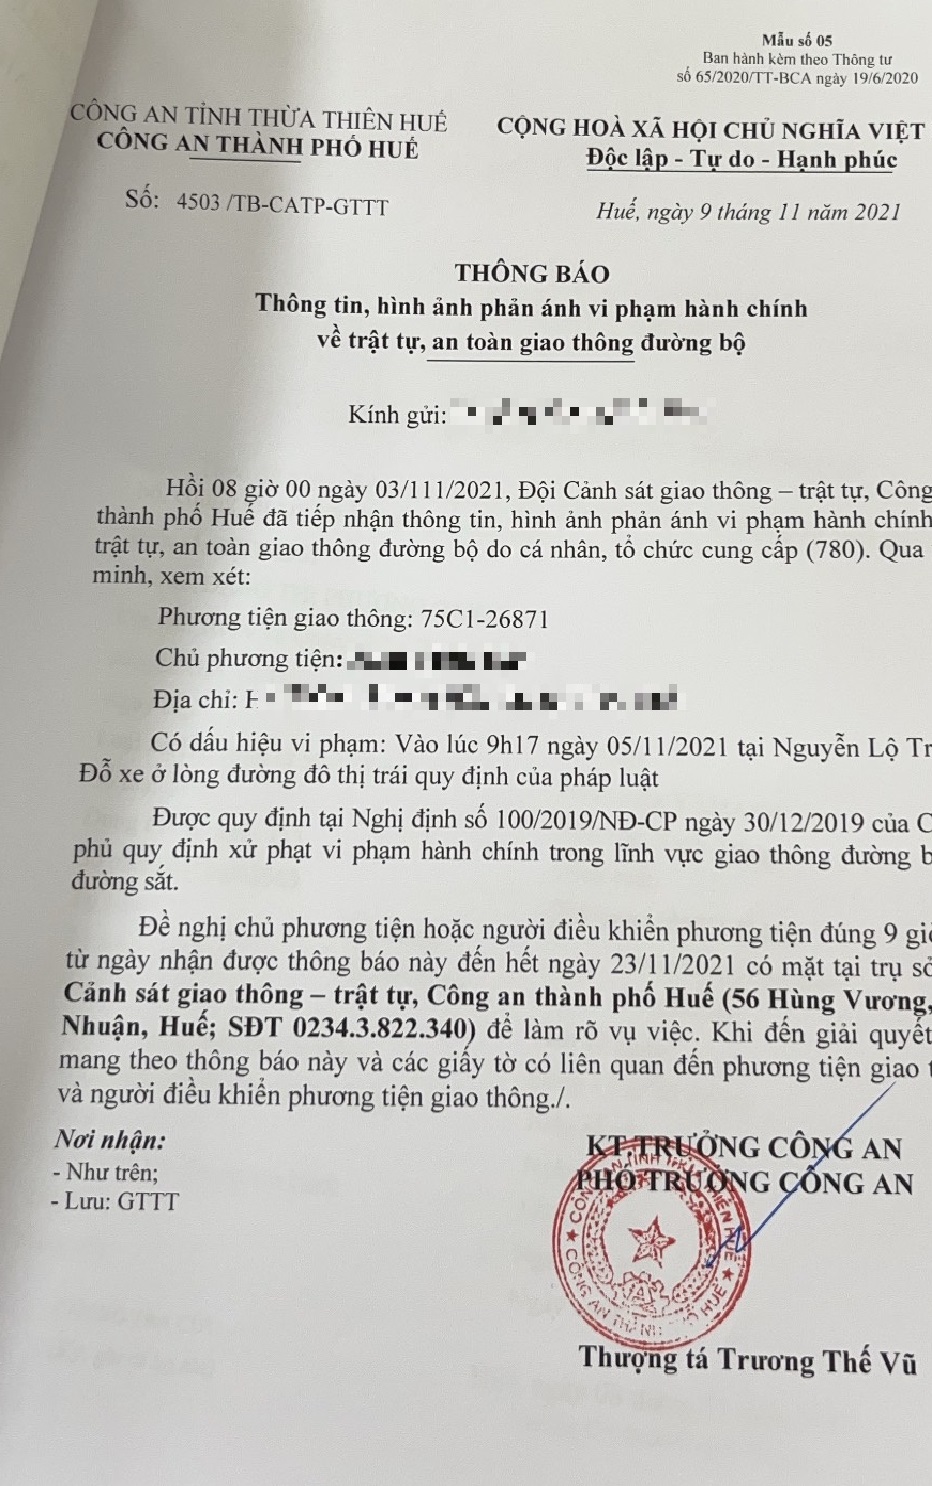 Mẫu số 05
Ban hành kèm theo Thông tư
số 65/2020/TT-BCA ngày 19/6/2020
CÔNG AN TỈNH THỪA THIÊN HUẾ
CÔNG AN THÀNH PHỐ HUẾ
CỘNG HOÀ XÃ HỘI CHỦ NGHĨA VIỆT
Độc lập - Tự do - Hạnh phúc
Số: 4503 /TB-CATP-GTTT
Huế, ngày 9 tháng 11 năm 2021
THÔNG BÁO
Thông tin, hình ảnh phản ánh vi phạm hành chính
về trật tự, an toàn giao thông đường bộ
Kính gửi:
Hồi 08 giờ 00 ngày 03/111/2021, Đội Cảnh sát giao thông – trật tự, Công
thành phố Huế đã tiếp nhận thông tin, hình ảnh phản ánh vi phạm hành chính
trật tự, an toàn giao thông đường bộ do cá nhân, tổ chức cung cấp (780). Qua
minh, xem xét:
Phương tiện giao thông: 75C1-26871
Chủ phương tiện:
Địa chỉ:
Có dấu hiệu vi phạm: Vào lúc 9h17 ngày 05/11/2021 tại Nguyễn Lộ Tr
Đỗ xe ở lòng đường đô thị trái quy định của pháp luật
Được quy định tại Nghị định số 100/2019/NĐ-CP ngày 30/12/2019 của C
phủ quy định xử phạt vi phạm hành chính trong lĩnh vực giao thông đường b
đường sắt.
Đề nghị chủ phương tiện hoặc người điều khiển phương tiện đúng 9 giờ
từ ngày nhận được thông báo này đến hết ngày 23/11/2021 có mặt tại trụ sở
Cảnh sát giao thông – trật tự, Công an thành phố Huế (56 Hùng Vương,
Nhuận, Huế; SĐT 0234.3.822.340) để làm rõ vụ việc. Khi đến giải quyết
mang theo thông báo này và các giấy tờ có liên quan đến phương tiện giao t
và người điều khiển phương tiện giao thông./.
Nơi nhận:
- Như trên;
- Lưu: GTTT
KT.TRƯỞNG CÔNG AN
PHÓ TRƯỞNG CÔNG AN
CÔNG AN TỈNH THỪA THIÊN HUẾ
CÔNG AN THÀNH PHỐ HUẾ
Thượng tá Trương Thế Vũ